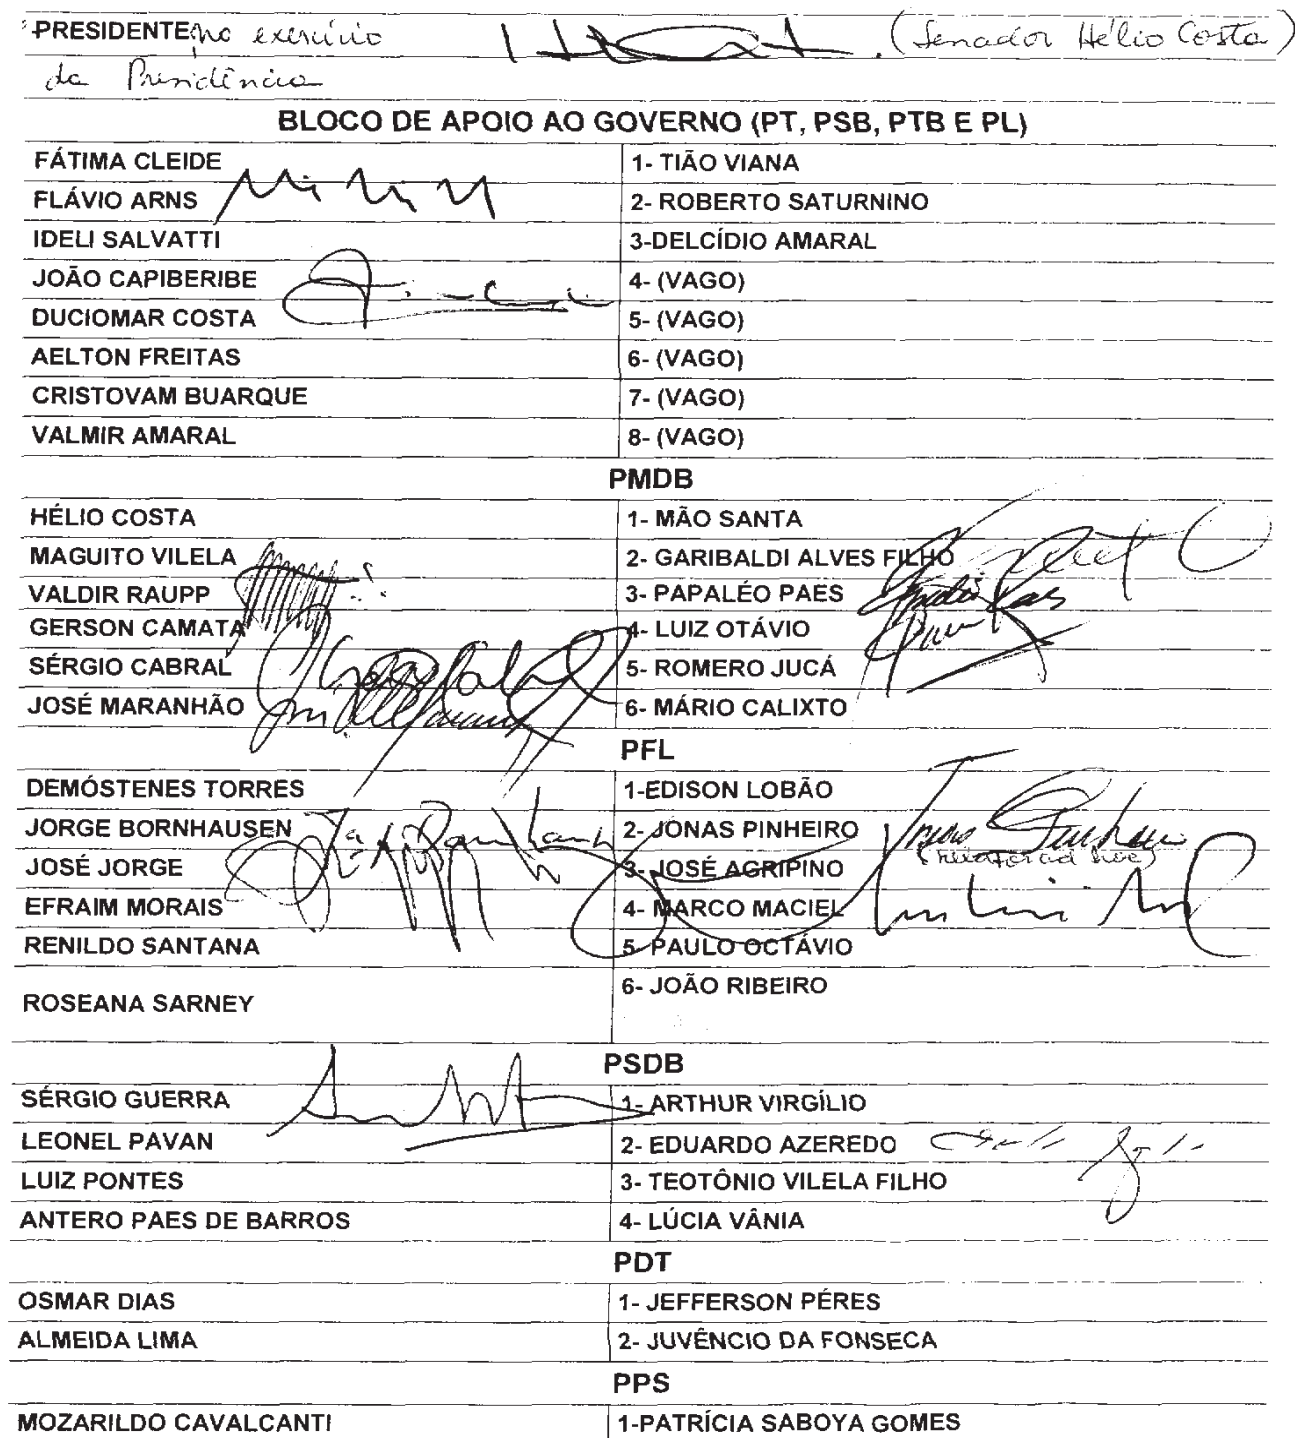 PRESIDENTE: no exercício (Senador Hélio Costa)
da Presidência
BLOCO DE APOIO AO GOVERNO (PT, PSB, PTB E PL)
FÁTIMA CLEIDE 1- TIÃO VIANA
FLÁVIO ARNS 2- ROBERTO SATURNINO
IDELI SALVATTI 3-DELCÍDIO AMARAL
JOÃO CAPIBERIBE 4- (VAGO)
DUCIOMAR COSTA 5- (VAGO)
AELTON FREITAS 6- (VAGO)
CRISTOVAM BUARQUE 7- (VAGO)
VALMIR AMARAL 8- (VAGO)
PMDB
HÉLIO COSTA 1- MÃO SANTA
MAGUITO VILELA 2- GARIBALDI ALVES FILHO
VALDIR RAUPP 3- PAPALÉO PAES
GERSON CAMATA 4- LUIZ OTÁVIO
SÉRGIO CABRAL 5- ROMERO JUCÁ
JOSÉ MARANHÃO 6- MÁRIO CALIXTO
PFL
DEMÓSTENES TORRES 1-EDISON LOBÃO
JORGE BORNHAUSEN 2- JONAS PINHEIRO
JOSÉ JORGE 3- JOSÉ AGRIPINO (relator ad hoc)
EFRAIM MORAIS 4- MARCO MACIEL
RENILDO SANTANA 5- PAULO OCTÁVIO
ROSEANA SARNEY 6- JOÃO RIBEIRO
PSDB
SÉRGIO GUERRA 1- ARTHUR VIRGÍLIO
LEONEL PAVAN 2- EDUARDO AZEREDO
LUIZ PONTES 3- TEOTÔNIO VILELA FILHO
ANTERO PAES DE BARROS 4- LÚCIA VÂNIA
PDT
OSMAR DIAS 1- JEFFERSON PÉRES
ALMEIDA LIMA 2- JUVÊNCIO DA FONSECA
PPS
MOZARILDO CAVALCANTI 1-PATRÍCIA SABOYA GOMES